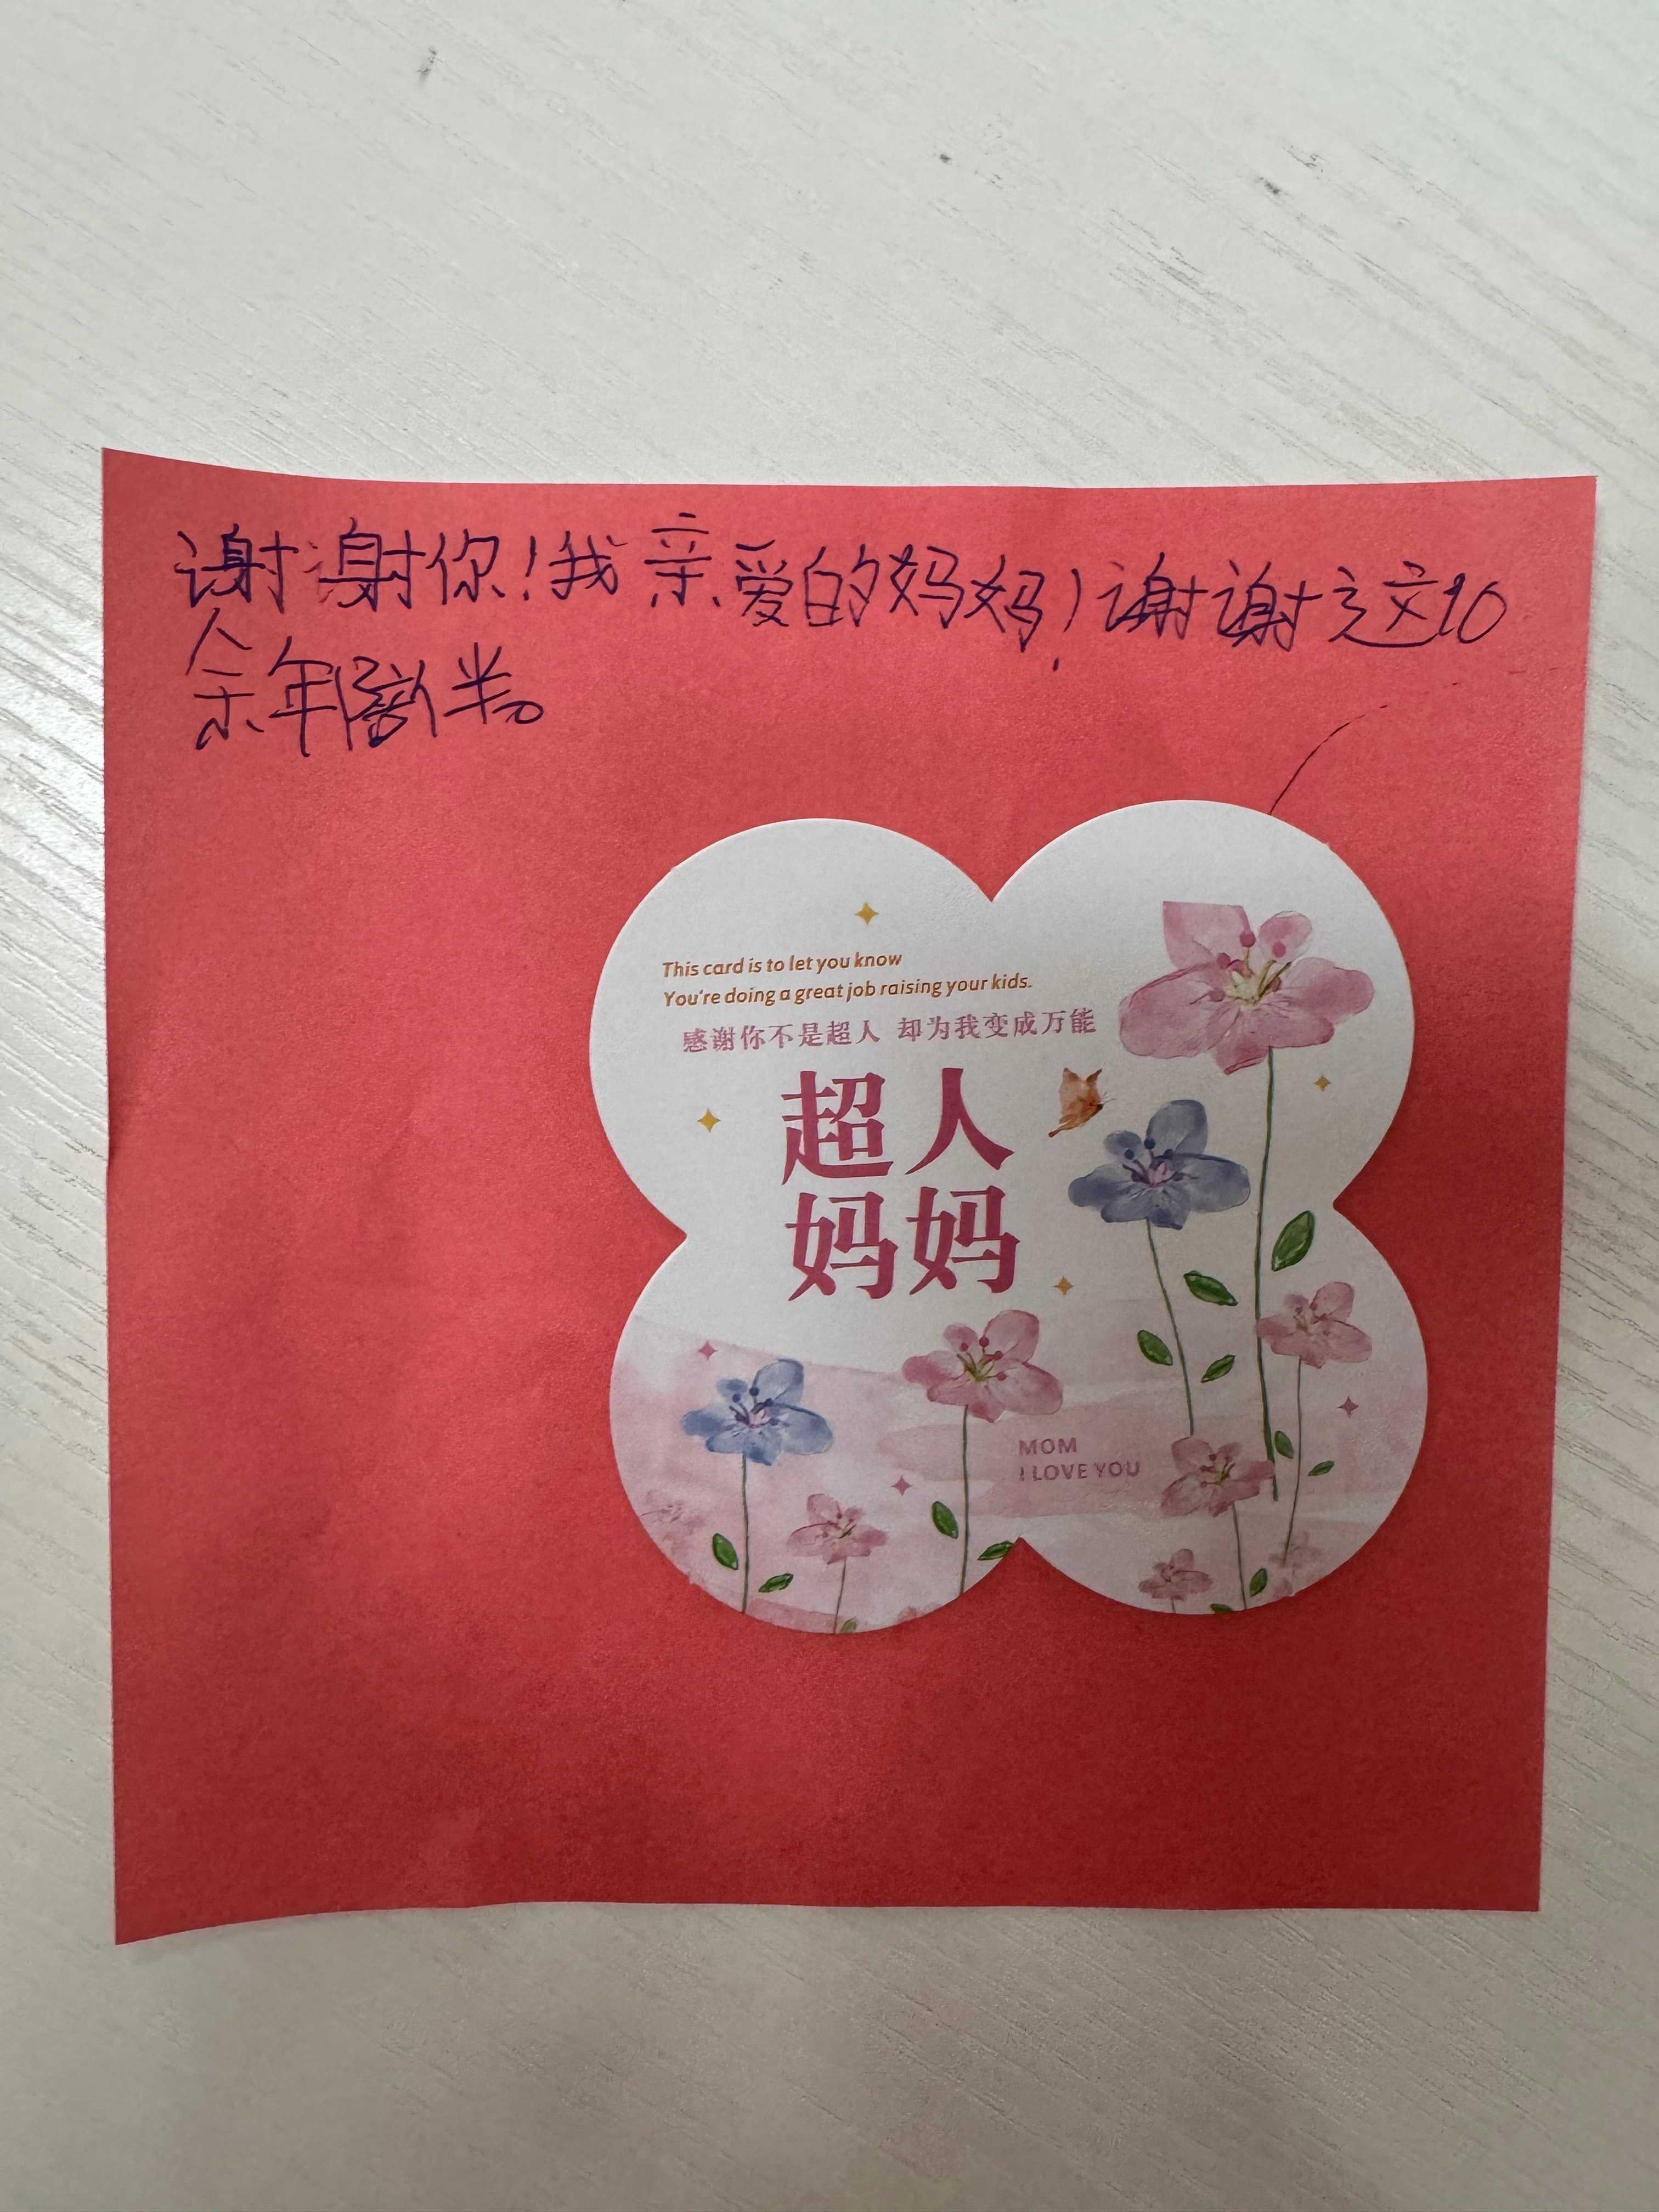 谢谢你!我亲爱的妈妈!谢谢这10
余年陪伴。
This card is to let you know
You're doing a great job raising your kids.
感谢你不是超人 却为我变成万能
超人
妈妈
MOM
I LOVE YOU